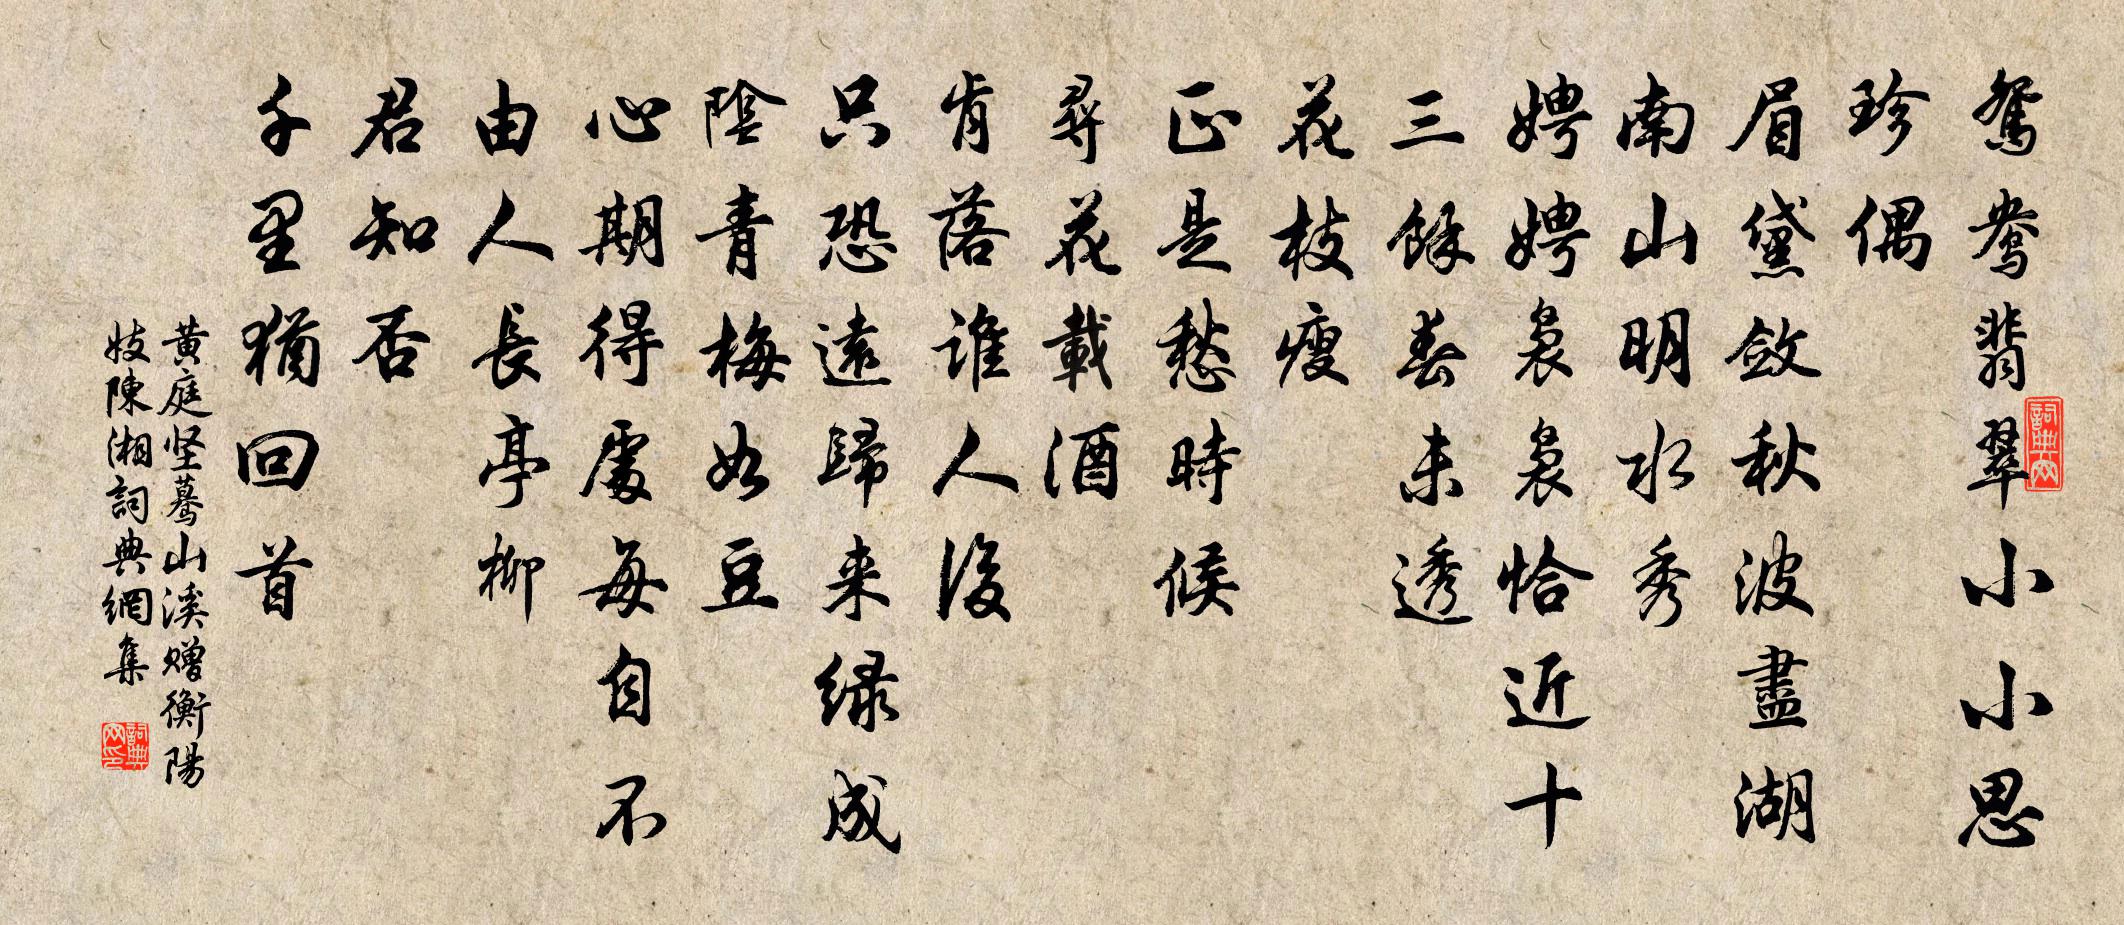 詞典网
鴛鴦翡翠小小思
珍偶
眉黛斂秋波盡湖
南山明水秀
娉娉裊裊恰近十
三餘春未透
花枝瘦
正是愁時候
尋花載酒
肯落誰人後
只恐遠歸来緑成
陰青梅如豆
心期得處每自不
由人長亭柳
君知否
千里猶回首
黄庭坚驀山溪赠衡陽
妓陳湘詞典網集
詞典网印